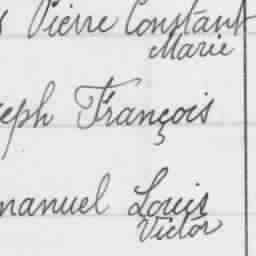 Pierre Constant
Marie
eph François
manuel Louis
Victor